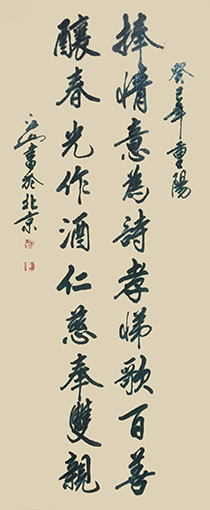 癸巳年重陽
捧情意為詩孝悌歌百善
釀春光作酒仁慈奉雙親
書於北京